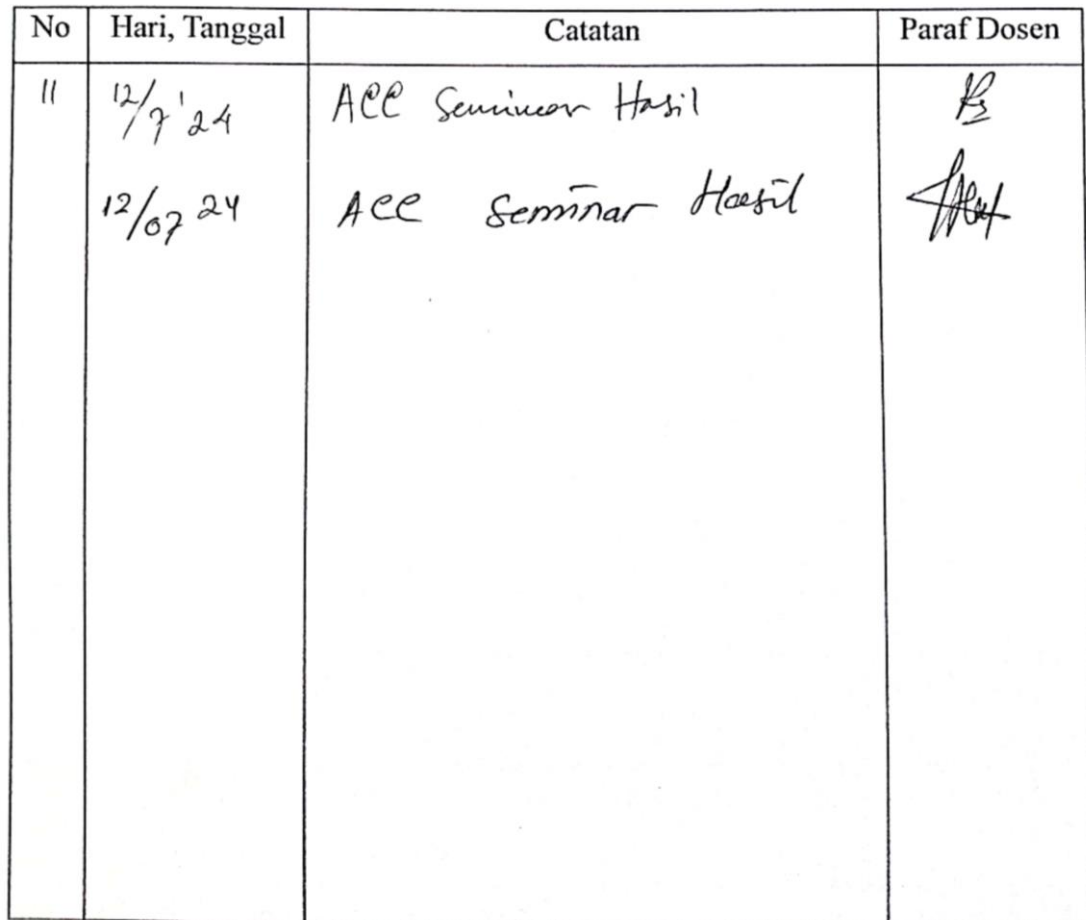 No Hari, Tanggal Catatan Paraf Dosen
11 12/7 '24 ACC Seminar Hasil
12/07 24 ACC Seminar Hasil